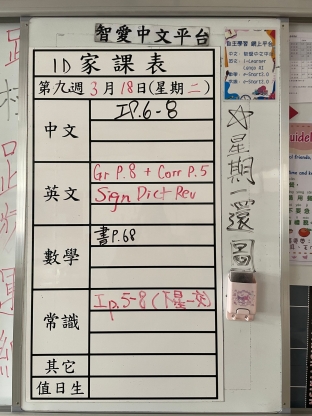 智愛中文平台
1D 家課表
第九週 3月18日(星期二)
中文
工P.6-8
英文
Gr P.8 + Corr P.5
Sign Dict Rev
數學
書P.68
常識
工p.5-8(下星一交)
其它
值日生
自主學習 網上平台
☆星期一還圖